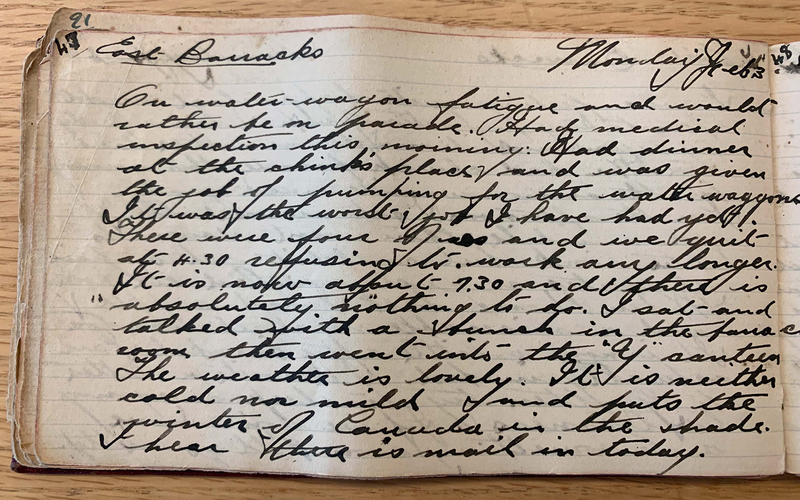 21
47 East Barracks Monday Feb 3 48
On water-wagon fatigue and would
rather be on parade. Had medical
inspection this morning. Had dinner
at the chink's place and was given
the job of pumping for the water waggons
It was the worst job I have had yet!
There were four of us and we quit
at 4.30 refusing to work any longer.
It is now about 7.30 and there is
absolutely nothing to do. I sat and
talked with a bunch in the
room then went into the "Y" canteen
The weather is lovely. It is neither
cold nor mild and puts the
winter of Canada in the shade.
I hear there is mail in today.